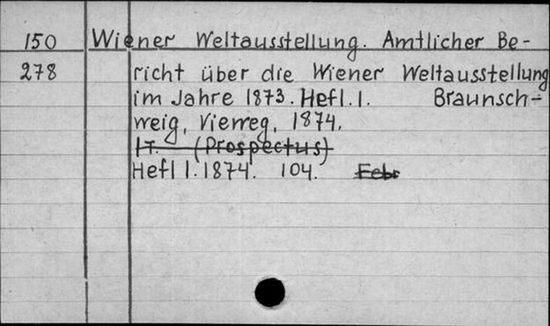 150 Wiener Weltausstellung. Amtlicher Be-
278 richt über die Wiener Weltausstellung
im Jahre 1873. Hefl. 1. Braunsch-
weig, Vierreg, 1874.
1 T. (Prospectus)
Hefl 1. 1874. 104. Febr